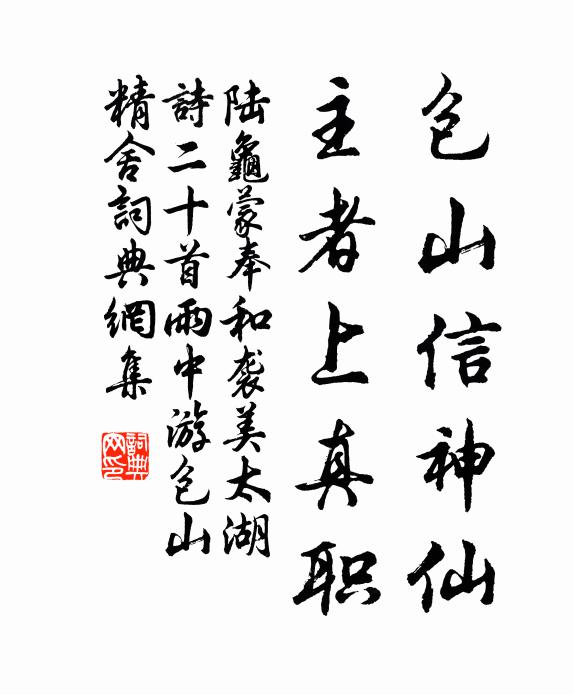 包山信神仙
主者上真职
陆龜蒙奉和袭美太湖
詩二十首雨中游包山
精舍詞典網集
詞典網印